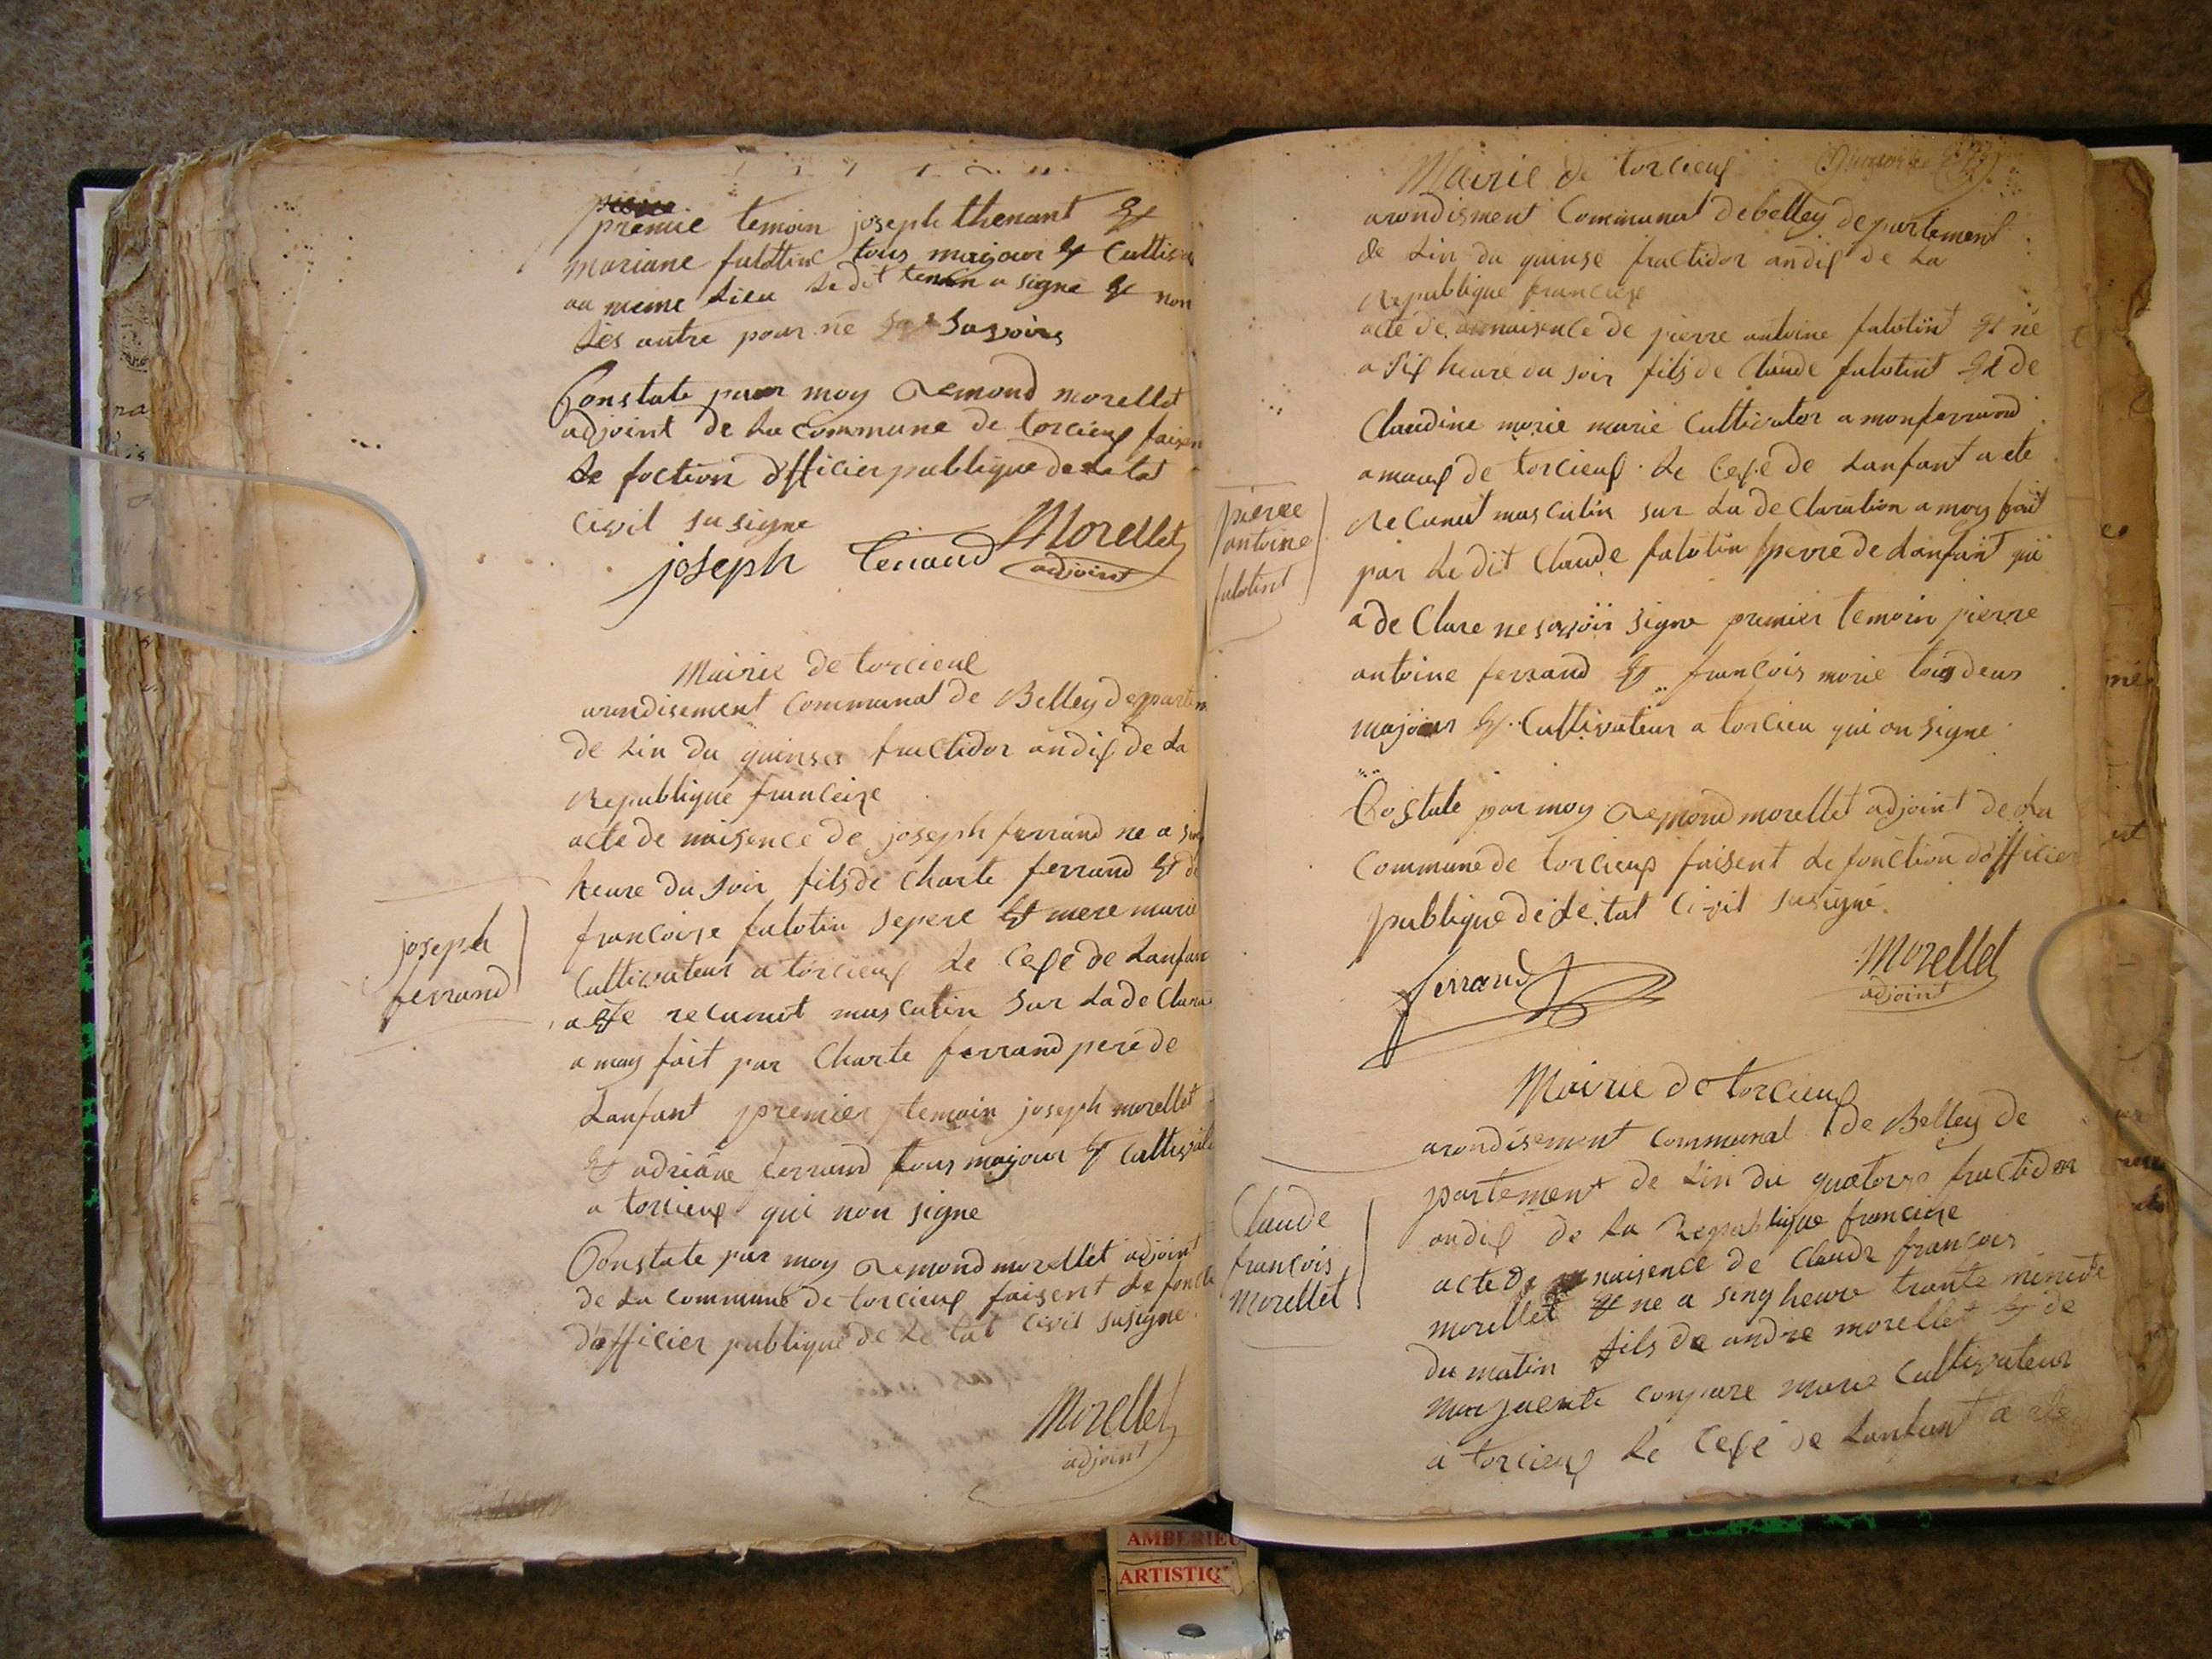 premie temoin joseph thenant et
mariane falotin tous majour et Cultiv
au meme Lieu Ledit temoin a signe et non
Les autre pour ne savoirs
Constate par moy Remond morellet
adjoint de La Commune de torcieux faisen
Le foction dofficier publique de Letat
Civil susigne
joseph Tenand Morellet
adjoint
Mairie de torcieux
arondisement Communal de Belley departem
de Lin du quinse fructidor an dix de La
Republique franceize
acte de naisence de joseph ferrand ne a six
heure du soir fils de Charle ferrand et de
francoise falotin se pere et mere marie
Cultivateur a torcieux Le Cexe de Lanfan
a ete recunut masculin sur La de Clara
a moy fait par Charle ferrand pere de
Lanfant premier temoin joseph morellet
et adriane ferrand tous majour et Cultivate
a torcieux qui non signe
Constate par moy Remond morellet adjoint
de La commune de torcieux faisent Le foncti
dofficier publique de Le tat Civil susigne.
Morellet
adjoint
joseph
ferrand
Mairie de torcieux
arondisment Communal de belley departement
de Lin du quinse fructidor an dix de La
Republique franceize
acte de naisence de pierre antoine falotint et ne
a six heure du soir fils de Claude falotint et de
Claudine marie marie Cultivator a monferrand
a maux de torcieux. Le Cexe de Lanfant a ete
Recunut masculin sur La de Claration a moy fait
par Le dit Claude falotin perre de Lanfant qui
a de Clare ne savoir signe premier temoin pierre
antoine ferrand et francois marie tous deus
majour et Cultivateur a torcieu qui on signe
Costate par moy Remond morellet adjoint de La
Commune de torcieux faisent Le fonction dofficier
publique de Le tat Civil susigné.
ferrand Morellet
adjoint
pierre
antoine
falotint
Mairie de torcieux
arondisement communal de Belley de
partement de Lin du quatorse fructidor
an dix de La Republique franceize
acte de naisence de Claude francois
morellet et ne a sinq heure trante minute
du matin fils de andre morellet et de
marguerite compare marie Cultivateur
a torcieux Le Cexe de Lanfant a ete
Claude
francois
morellet
AMBERIEU
ARTISTIQ